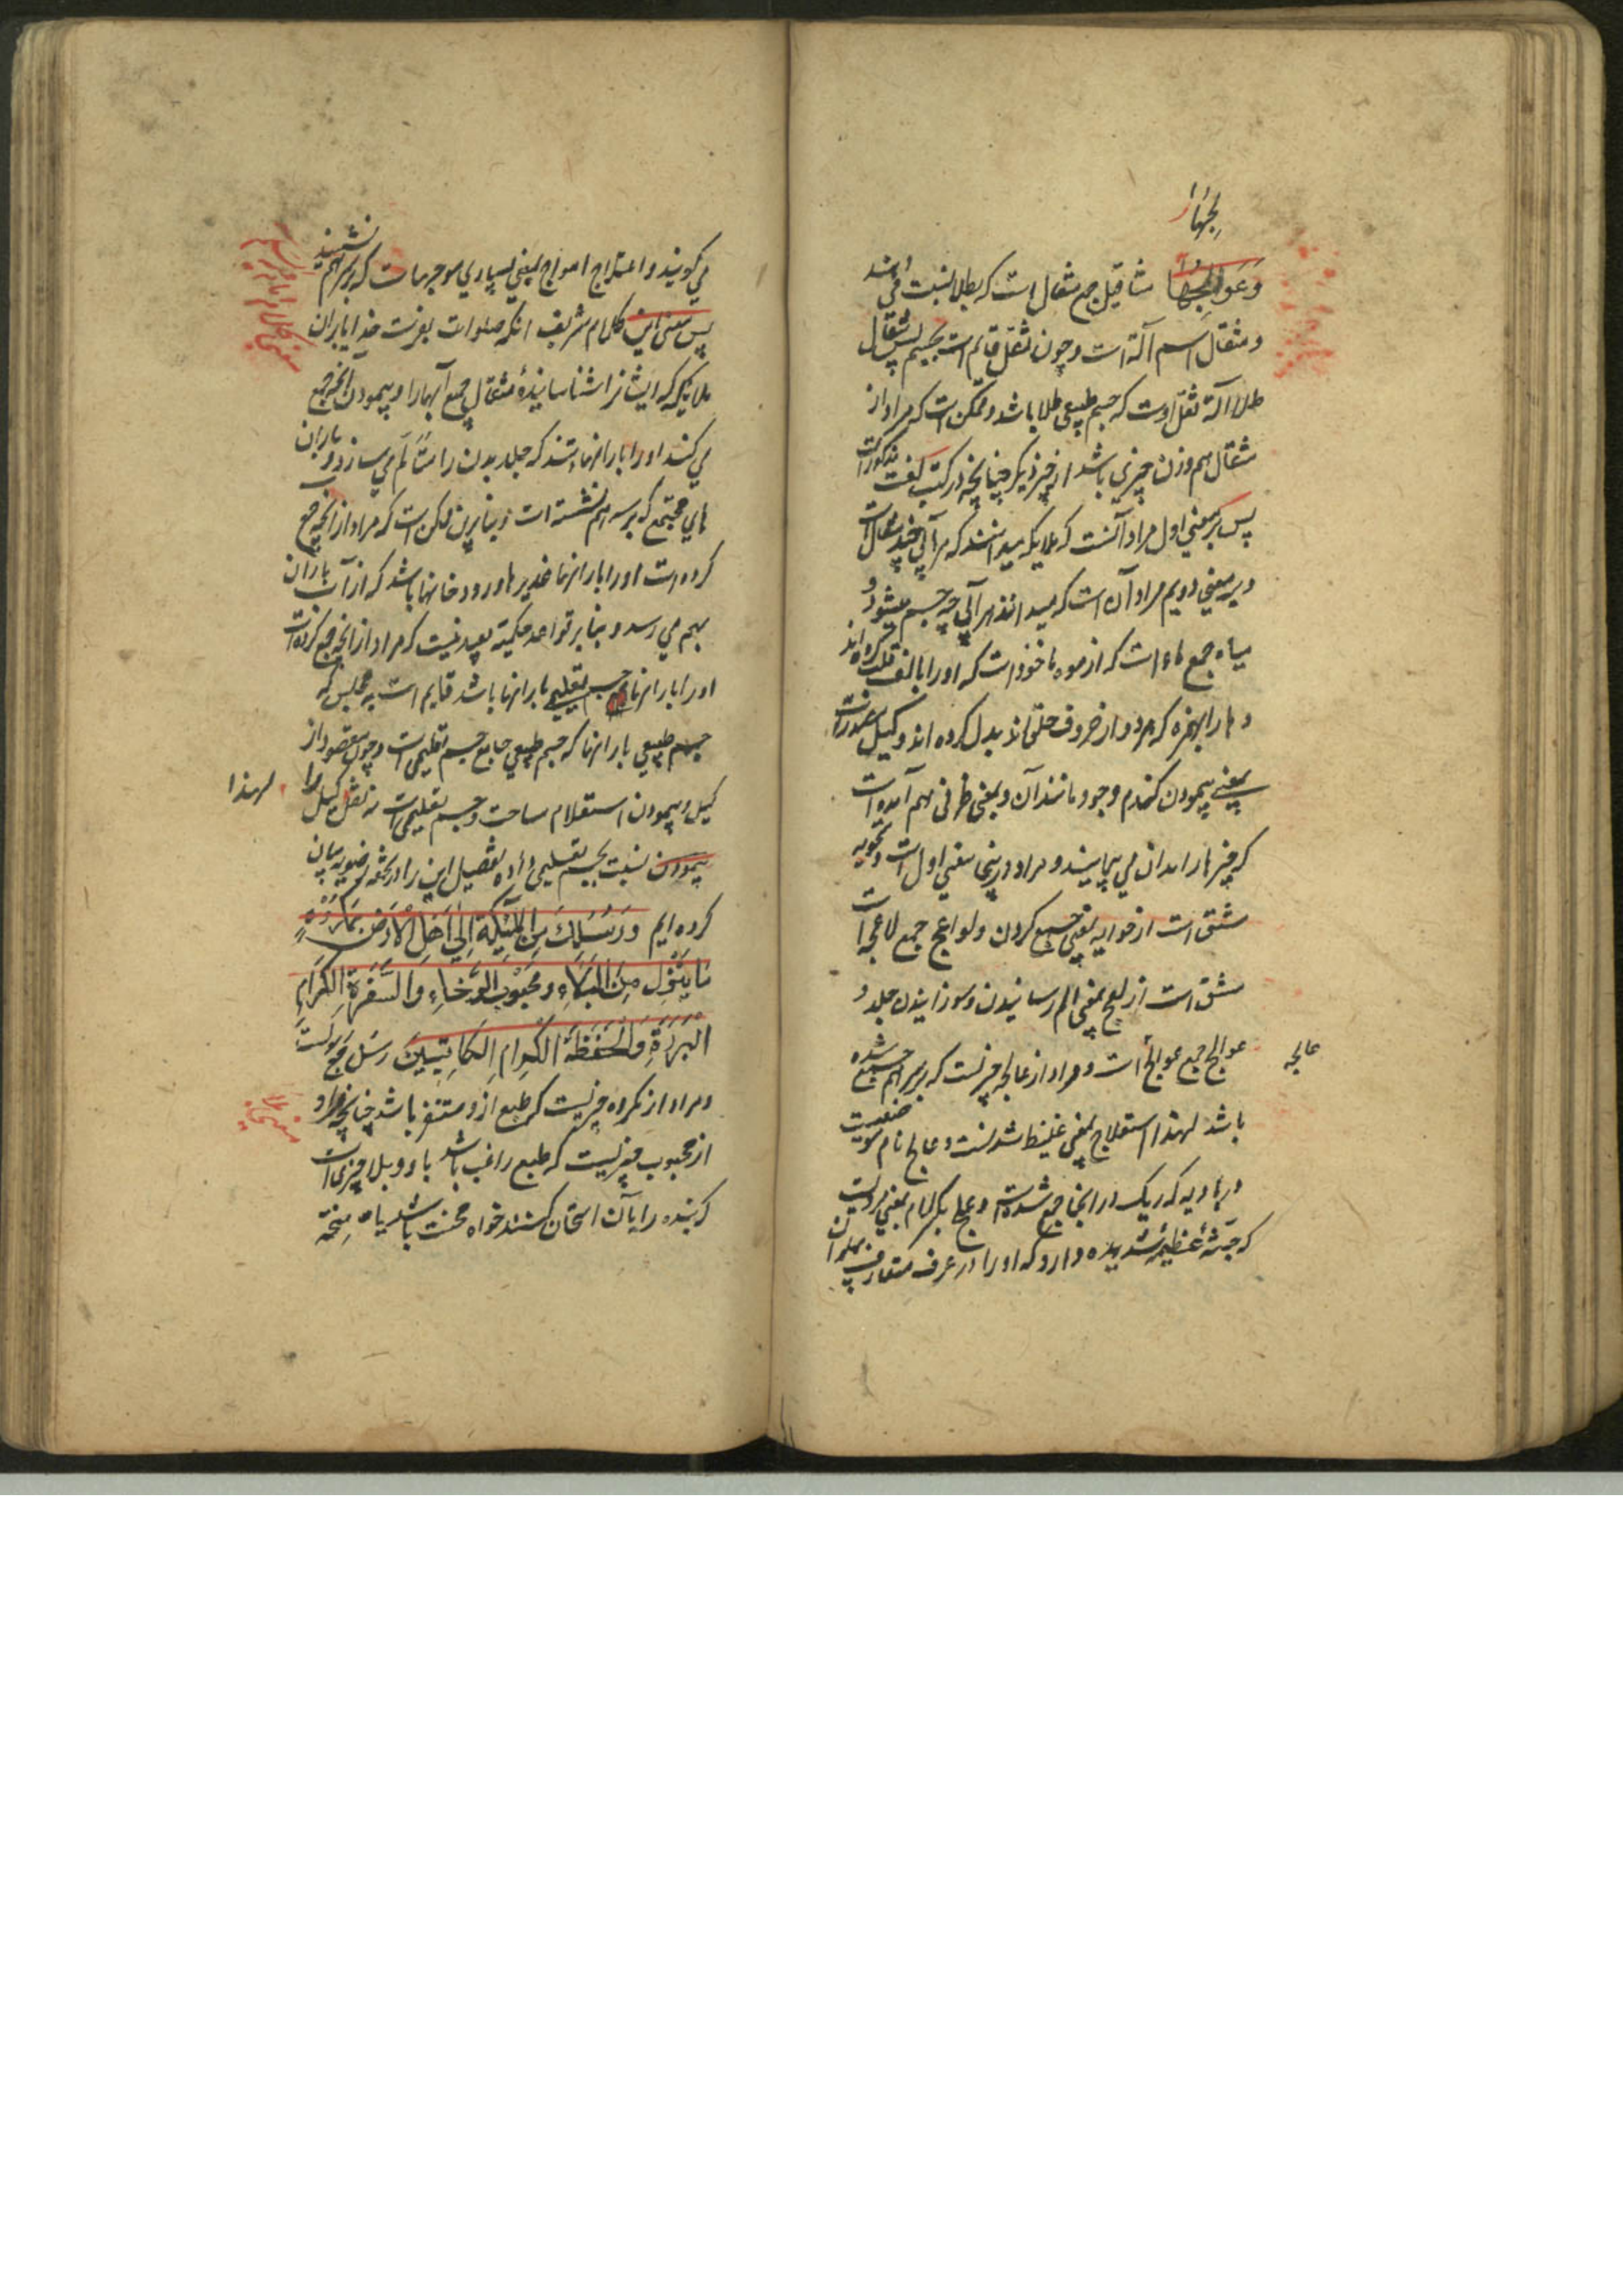 لجها
وَعَوالِجُهَا مثاقیل جمع مثقال است که بطلا نسبت
و مثقال اسم آلة است و چون ثقل قایم است بجسم پس مثقال
طلا آلة ثقل اوست که جسم طبیعی طلا باشد و ممکن است که مراد از
مثقال هم وزن چیزی باشد از چیز دیگر چنانچه در کتب لغت مذکورات
پس بر معنی اول مراد آنست که ملایکه میدانند که هر آبی چند مثقال است
و بر معنی دویم مراد آن است که میدانند هر آبی چه جسم میشود و
میاه جمع ماء است که از موه ماخوذ است که او را بالف قلب کرده اند
و ها را بهمزه که هر دو از حروف حلقی اند بدل کرده اند و کیل مصدرست
بمعنی پیمودن گندم و جو و مانند آن و بمعنی ظرفی هم آمده است
که چیزها را بدان می پیمایند و مراد درینجا معنی اول است و تحویه
مشتق است از حوایه بمعنی جمع کردن و لواعج جمع لاعجه است
مشتق است از لعج بمعنی الم رسانیدن و سوزانیدن جلد و
عوالج جمع عوالج است و مراد از عالجه چیزیست که بر سر هم جمع شده
عالجه
باشد لهذا استعلاج بمعنی غلیظ شدنست و عالج نام موضعیست
در بادیه که ریگ در انجا جمع شده است و علج بکسر لام بمعنی مردیست
که جثهٔ عظیمهٔ شدیده دارد که او را در عرف متعارف پهلوان
می گویند و اعتلاج امواج بمعنی بسیاری موجهاست که بر سر هم نشینند
پس معنی این کلام شریف انکه صلوات بفرست خدایا بران
ملایکه که ایشانرا شناسانیدهٔ مثقال جمیع آبها را و پیمودن انچه جمع
می کنند او را بارانها تند که جلد بدن را متألم می سازد و باران
های مجتمع که بر سر هم نشسته است و بنابرین ممکن است که مراد از انچه جمع
کرده است او را بارانها غدیرها و رودخانها باشد که از آب باران
بهم می رسد و بنابر قواعد حکمیة بعید نیست که مراد از انچه جمع کرده است
او را بارانها جسم تعلیمی بارانها باشد قایم است به
جسم طبیعی بارانها که جسم طبیعی جامع جسم تعلیمی است و چون مقصود از
کیل و پیمودن استعلام مساحت و جسم تعلیمی است نه ثقل کیل را
لهذا
پیمودن نسبت بجسم تعلیمی داده تفصیل این را در تحفه رضویه بیان
کرده ایم وَرُسُلِكَ مِنَ الْمَلٰئِكَةِ اِلٰی اَهْلِ الْاَرْضِ بِمَكْرُوْهِ
مَا يَنْزِلُ مِنَ الْبَلَاءِ وَمَحْبُوْبِ الرَّخَاءِ وَالسَّفَرَةِ الْكِرَامِ
الْبَرَرَةِ وَالْحَفَظَةِ الْكِرَامِ الْكَاتِبِينَ رسل جمع رسولست
و مراد از مکروه چیزیست که طبع ازو متنفر باشد چنانچه مراد
از محبوب چیزیست که طبع راغب باشد باو و بلا چیزی است
که بنده را بآن امتحان کنند خواه محنت باشد یا منحة